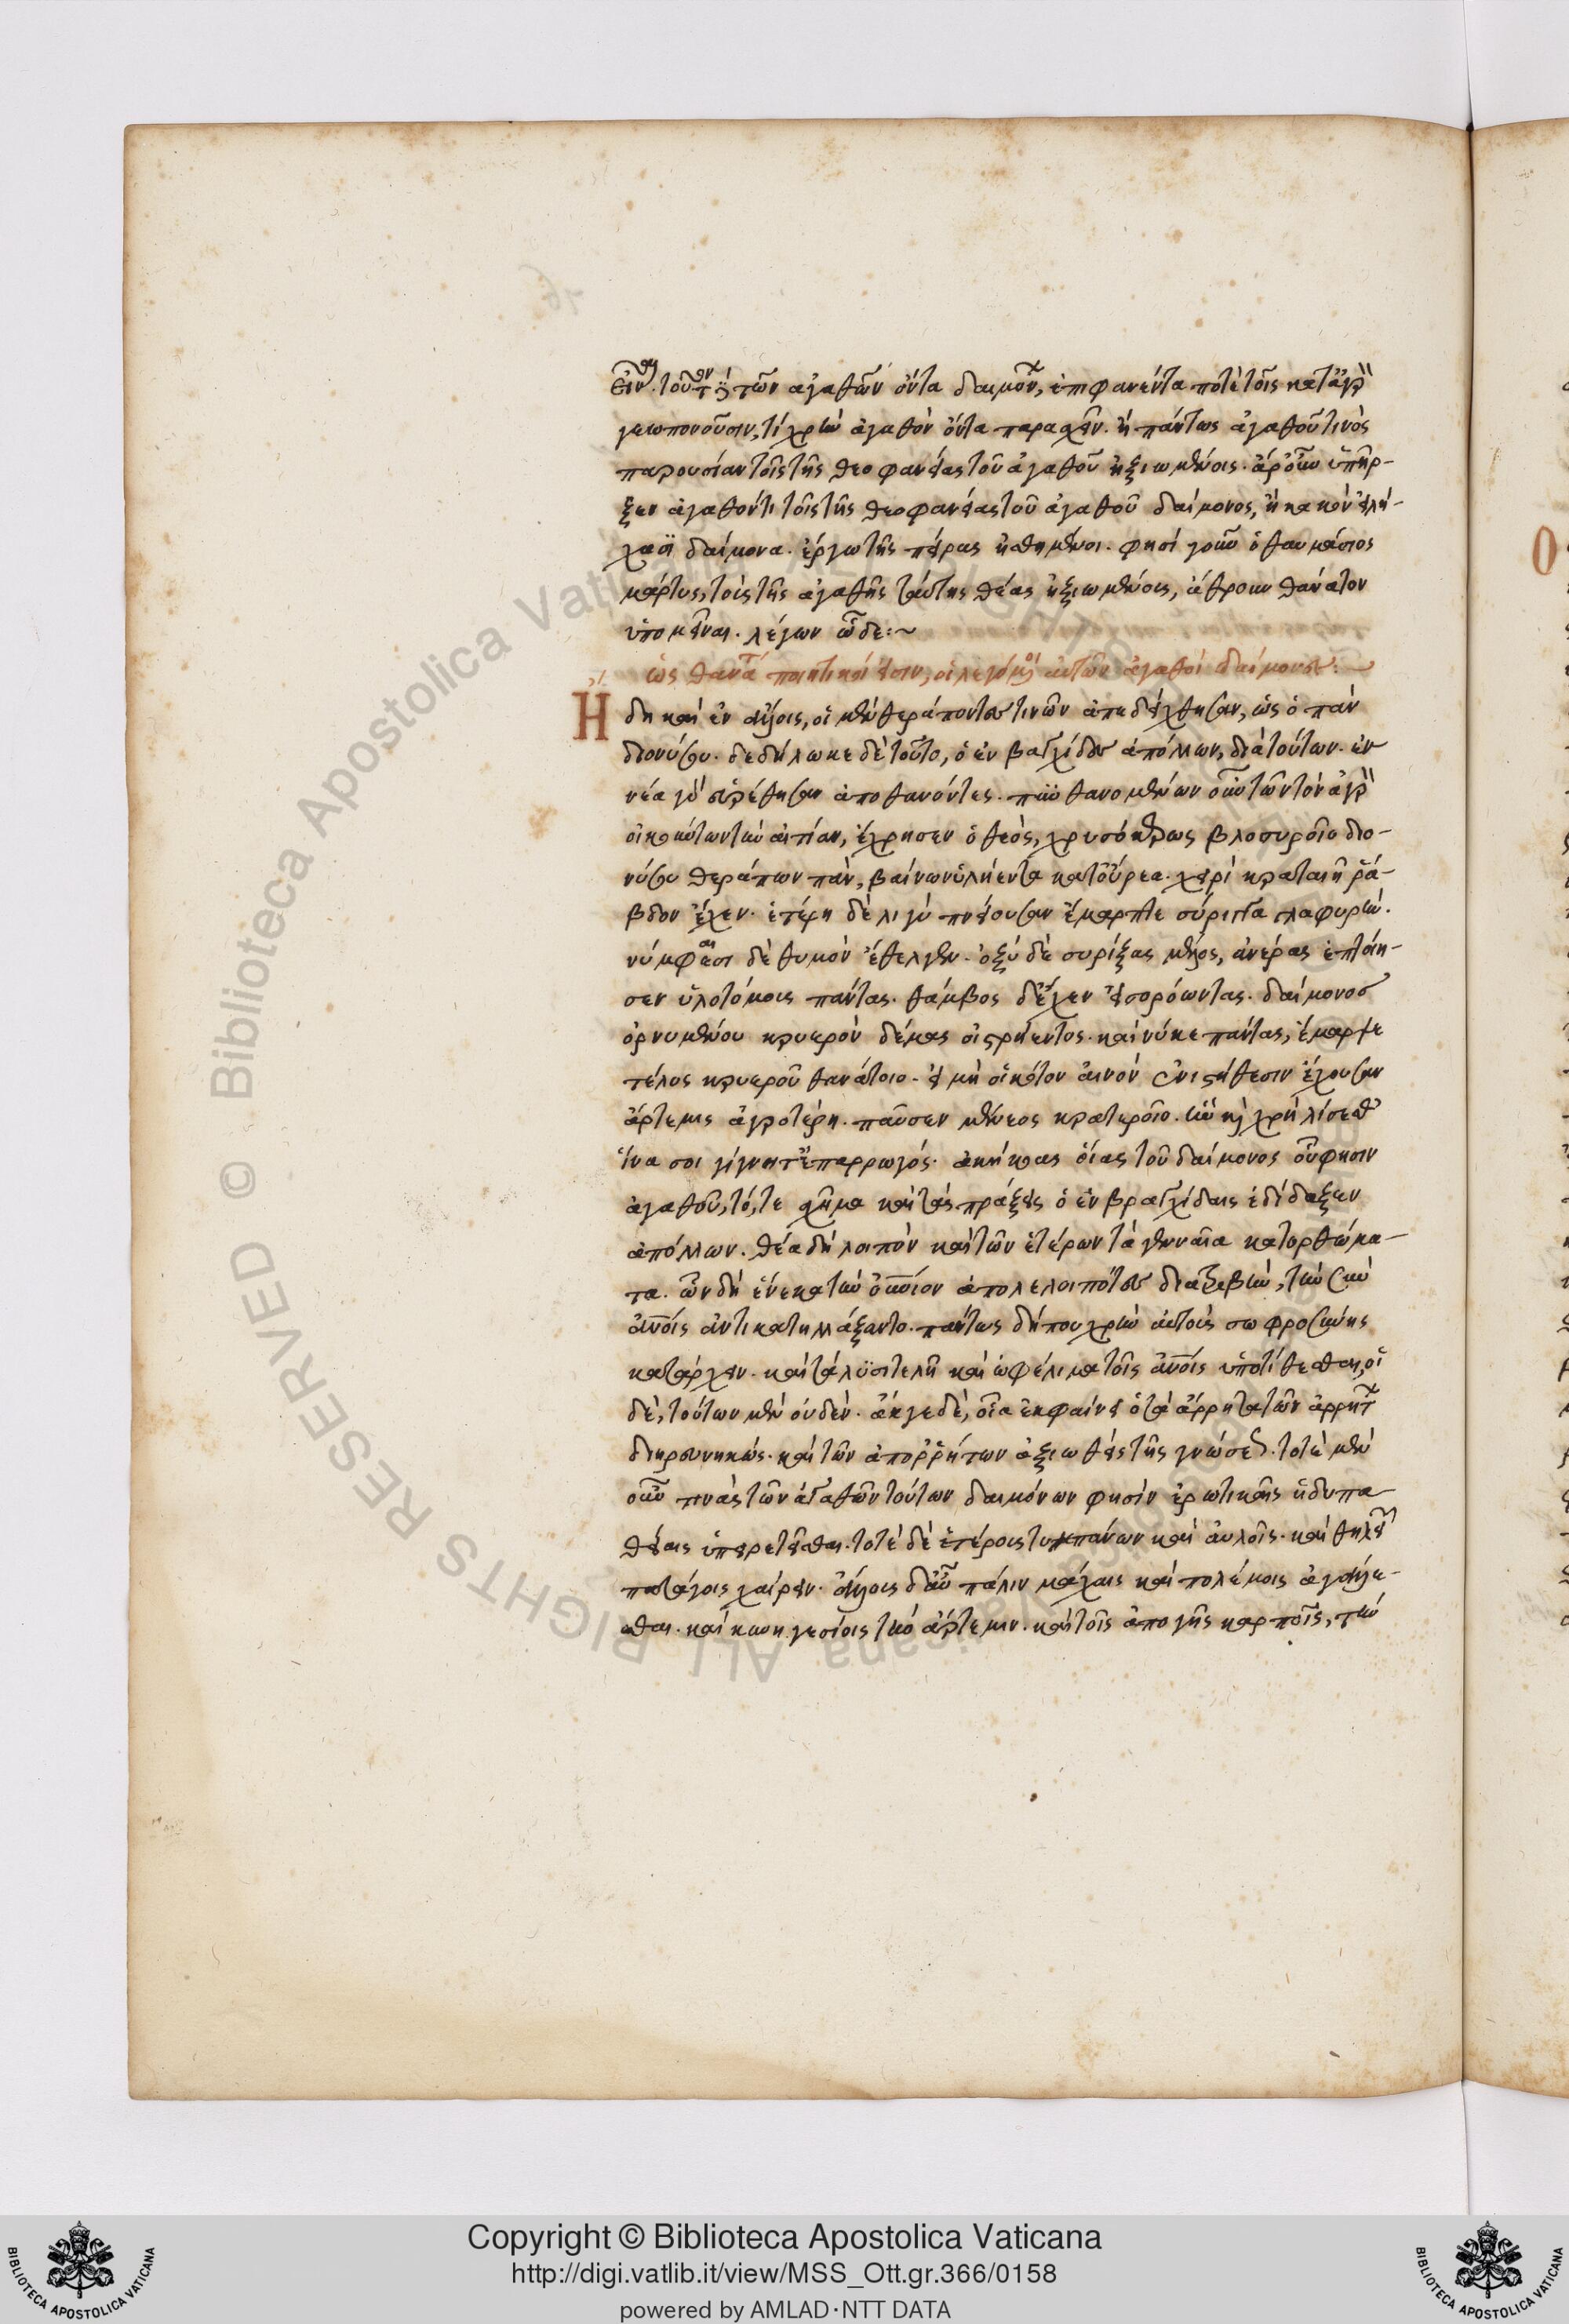 εἶναι. τοῦτον τοίνυν τῶν ἀγαθῶν ὄντα δαιμόνων, ἐπιφανέντα ποτὲ τοῖς κατ' ἀγρὸν
γεωπονοῦσιν, τί χρῆν ἀγαθὸν ὄντα παρασχεῖν. ἢ πάντως ἀγαθοῦ τινὸς
παρουσίαν τοῖς τῆς θεοφανείας τοῦ ἀγαθοῦ ἠξιωμένοις. ἆρ' οὖν ὑπῆρ-
ξεν ἀγαθόν τι τοῖς τῆς θεοφανείας τοῦ ἀγαθοῦ δαίμονος, ἢ κακὸν εἰλή-
χασι δαίμονα. ἔργω τῆς πείρας ᾐσθημένοι. φησί γοῦν ὁ θαυμάσιος
μάρτυς, τοὺς τῆς ἀγαθῆς ταύτης θέας ἠξιωμένους, ἄθρουν θάνατον
ὑπομεῖναι. λέγων ὧδε:~
ὡς θανατοποιητικοί εἰσιν, οἱ λεγόμενοι αὐτῶν ἀγαθοὶ δαίμονες:~
Ἤ
δη καὶ ἐν ἄλλοις, οἱ μὲν θεράποντες τινῶν ἀπεδείχθησαν, ὡς ὁ πὰν
διονύσου. δεδήλωκε δὲ τοῦτο, ὁ ἐν βραγχίδαις ἀπόλλων, διὰ τούτων. ἐν
νέα γὰρ εὑρέθησαν ἀποθανόντες. πυνθανομένων οὖν τῶν τὸν ἀγρὸν
οἰκούντων τὴν αἰτίαν, ἔχρησεν ὁ θεὸς, χρυσόκερως βλοσυροῖο διο-
νύσου θεράπων πὰν, βαίνων ὑλήεντα κατ' οὔρεα. χειρὶ κραταιῇ ῥά-
βδον ἔχεν. ἑτέρη δὲ λιγὺ πνείουσαν ἔμαρπτε σύριγγα γλαφυρήν.
νύμφαισι δὲ θυμὸν ἔθελγεν. ὀξὺ δὲ συρίξας μέλος, ἀνέρας ἐπτοίη-
σεν ὑλοτόμους πάντας. θάμβος δ' ἔχεν εἰσορόωντας. δαίμονος
ὀρνυμένου κρυερὸν δέμας οἰστρήεντος. καί νύ κε πάντας, ἔμαρψε
τέλος κρυεροῦ θανάτοιο. εἰ μὴ οἱ κότον αἰνὸν ἐνὶ στήθεσιν ἔχουσαν
ἄρτεμις ἀγροτέρη. παῦσεν μένεος κρατεροῖο. ἣν καὶ χρὴ λίσσεσθ'
ἵνα σοι γίγνητ' ἐπαρρωγός. ἀκήκοας οἵας τοῦ δαίμονος οὗ φησιν
ἀγαθοῦ, τό, τε σχῆμα καὶ τὰς πράξεις ὁ ἐν βραγχίδαις ἐδίδαξεν
ἀπόλλων. θέα δὴ λοιπὸν καὶ τῶν ἑτέρων τὰ γενναῖα κατορθώμα-
τα. ὧν δὴ ἕνεκα τὴν οὐράνιον ἀπολελοιπότες διατριβὴν, τὴν σὺν
ἀνοῖς ἀντικατηλλάξαντο. πάντως δήπου χρῆν αὐτοὺς σωφροσύνης
κατάρχειν. καὶ τὰ λυσιτελῆ καὶ ὠφέλιμα τοῖς ἀνοῖς ὑποτίθεσθαι, οἱ
δὲ, τούτων μὲν οὐδὲν. ἄκουε δὲ, οἷα ἐκφαίνει ὁ τὰ ἄρρητα τῶν ἀρρήτων
διηρευνηκώς. καὶ τῶν ἀπορρήτων ἀξιωθεὶς τῆς γνώσεως. τοτὲ μὲν
οὖν τινὰς τῶν ἀγαθῶν τούτων δαιμόνων φησὶν ἐρωτικαῖς ἡδυπα-
θείαις ὑπηρετεῖσθαι. τοτὲ δὲ ἑτέροις τυμπάνων καὶ αὐλοῖς. καὶ θηλειῶν
πατάγοις χαίρειν. ἄλλοις δ' αὖ πάλιν μάχαις καὶ πολέμοις ἀγάλλε-
σθαι. καὶ κυνηγεσίοις τὴν ἄρτεμιν. καὶ τοῖς ἀπὸ γῆς καρποῖς, τὴν